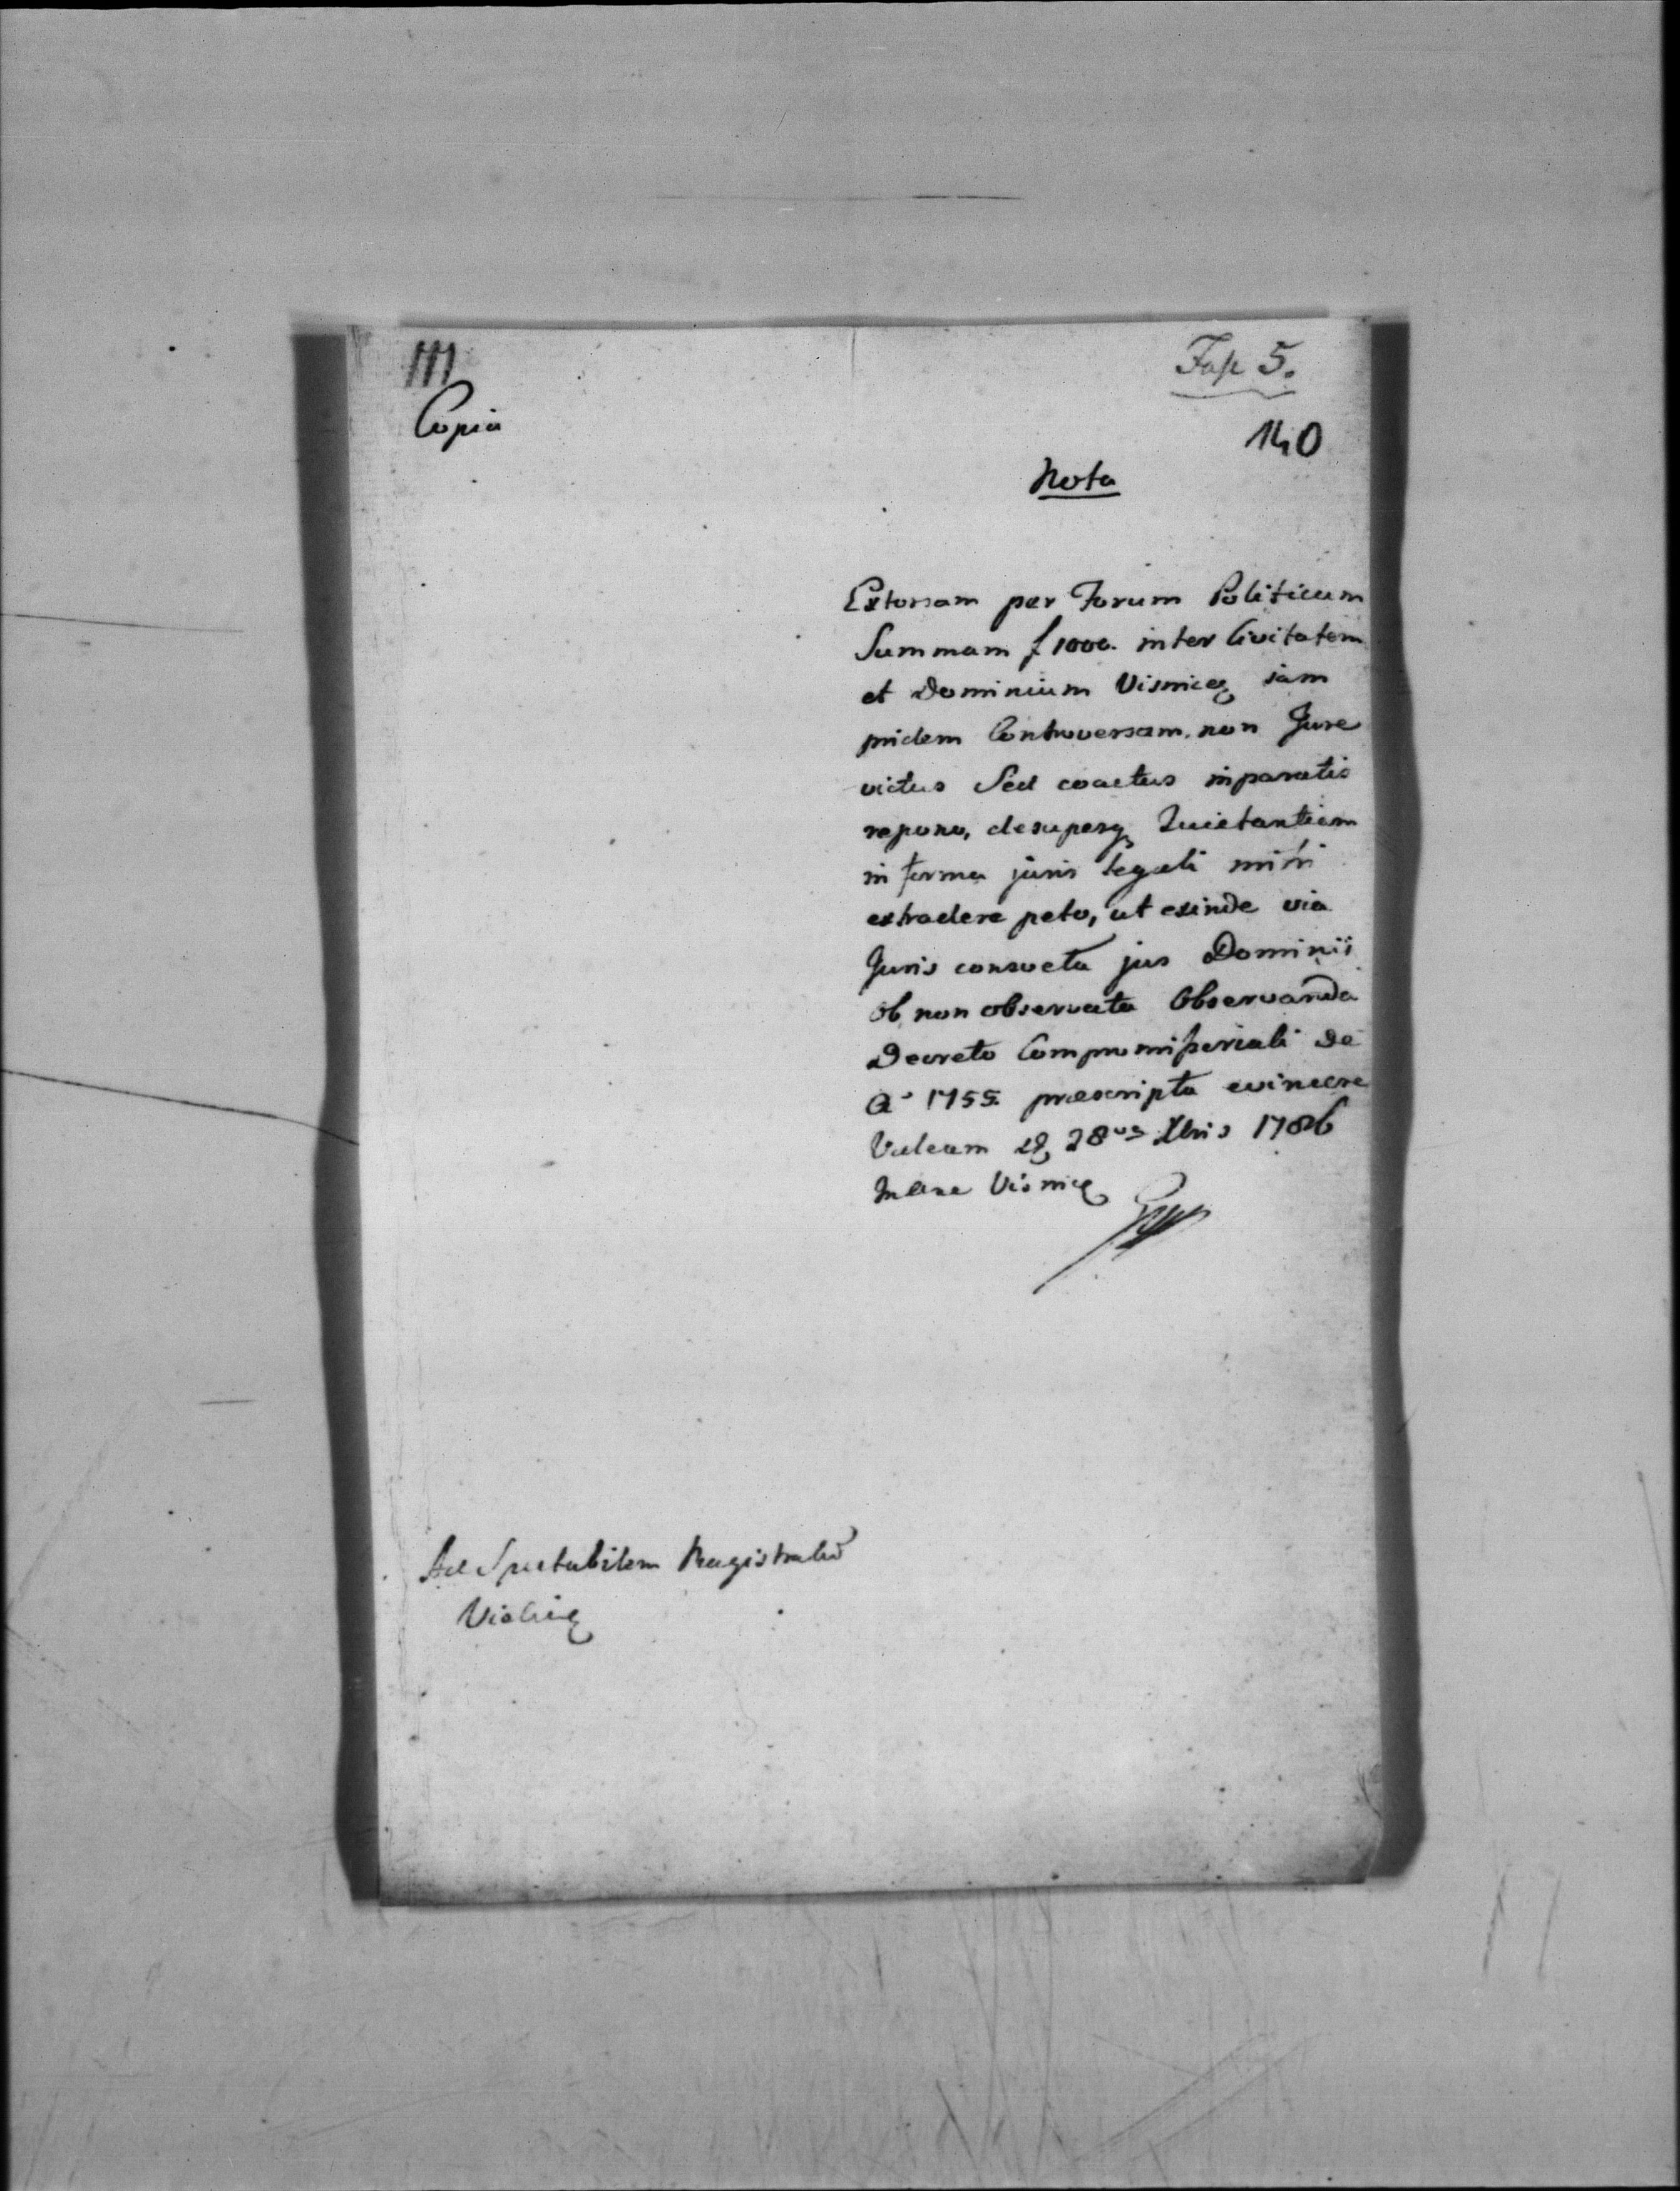 111
Copia
Fasc 5.
140
Nota
Extorsam per Forum Politicum
Summam f 1000. inter Civitatem
et Dominium Visniciꝫ iam
pridem Controversam, non Jure
victus Sed coactus in paratis
repono, desuperqꝫ Quietantiam
in forma juris legali mihi
extradere peto, ut exinde via
Juris consveta jus Dominii
ob non observata Observanda
Decreto Compromissoriali de
Aº 1755 præscripta evincere
Valeam 28va Xbris 1786
Visnicę
Ad Spectabilem Magistratū